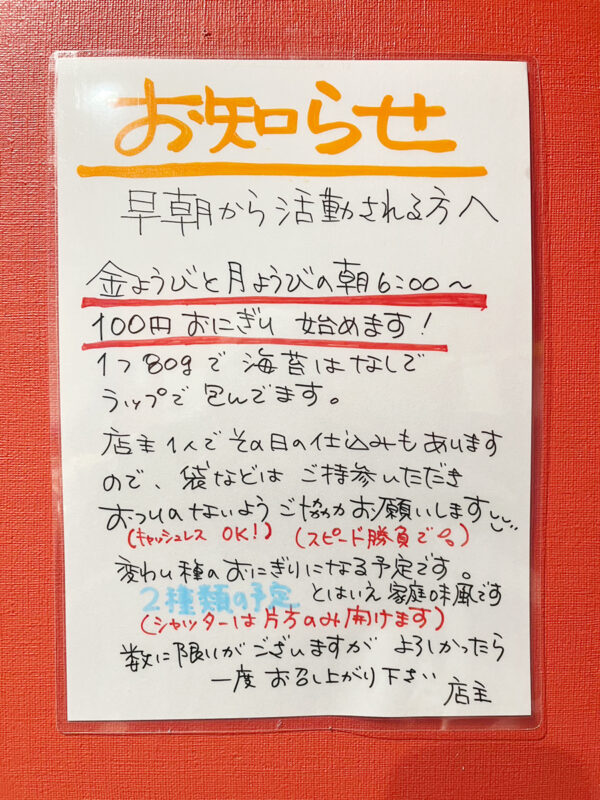 お知らせ
早朝から活動される方へ
金ようびと月ようびの朝6:00～
100円おにぎり 始めます！
1つ80gで 海苔はなしで
ラップで包んでます。
店主1人でその日の仕込みもあります
ので、袋などは ご持参いただき
おつりのないようご協力お願いします
(キャッシュレス OK!) (スピード勝負で。)
変わり種のおにぎりになる予定です。
2種類の予定 とはいえ家庭味風です
(シャッターは片方のみ開けます)
数に限りがございますが よろしかったら
一度 お召し上がり下さい
店主